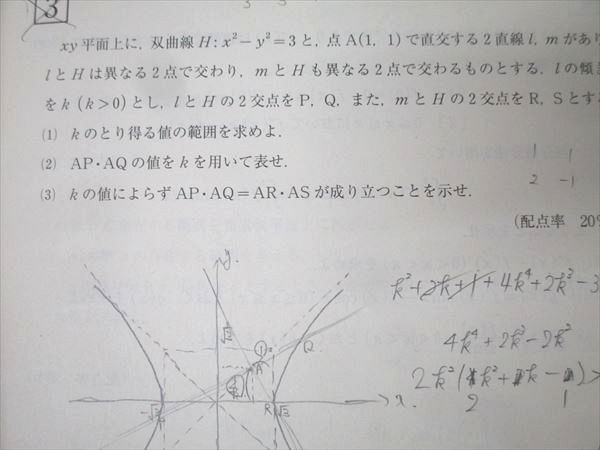 3
xy平面上に, 双曲線H:x²-y²=3と, 点A(1, 1)で直交する2直線l, mがあり
lとHは異なる2点で交わり, mとHも異なる2点で交わるものとする. lの傾
をk (k>0)とし, lとHの2交点をP, Q, また, mとHの2交点をR, Sとす
(1) kのとり得る値の範囲を求めよ.
(2) AP・AQの値をkを用いて表せ.
(3) kの値によらずAP・AQ=AR・ASが成り立つことを示せ.
1 1
2 -1
(配点率 20%
y
√3
①
A
Q
-√3
R
√3
x
k²+2k+1+4k⁴+2k³-3
4k⁴+2k³-2k²
2 1